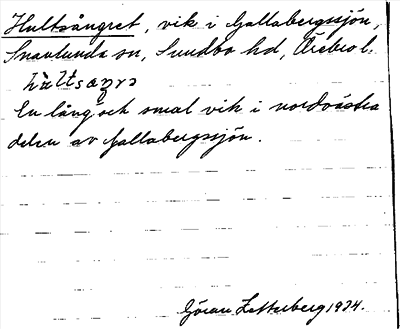 Hultsångret, vik i Gallabergssjön,
Snavlunda sn, Sundbo hd, Örebro l.
En lång och smal vik i nordvästra
delen av Gallabergssjön.
Göran Zetterberg 1934.